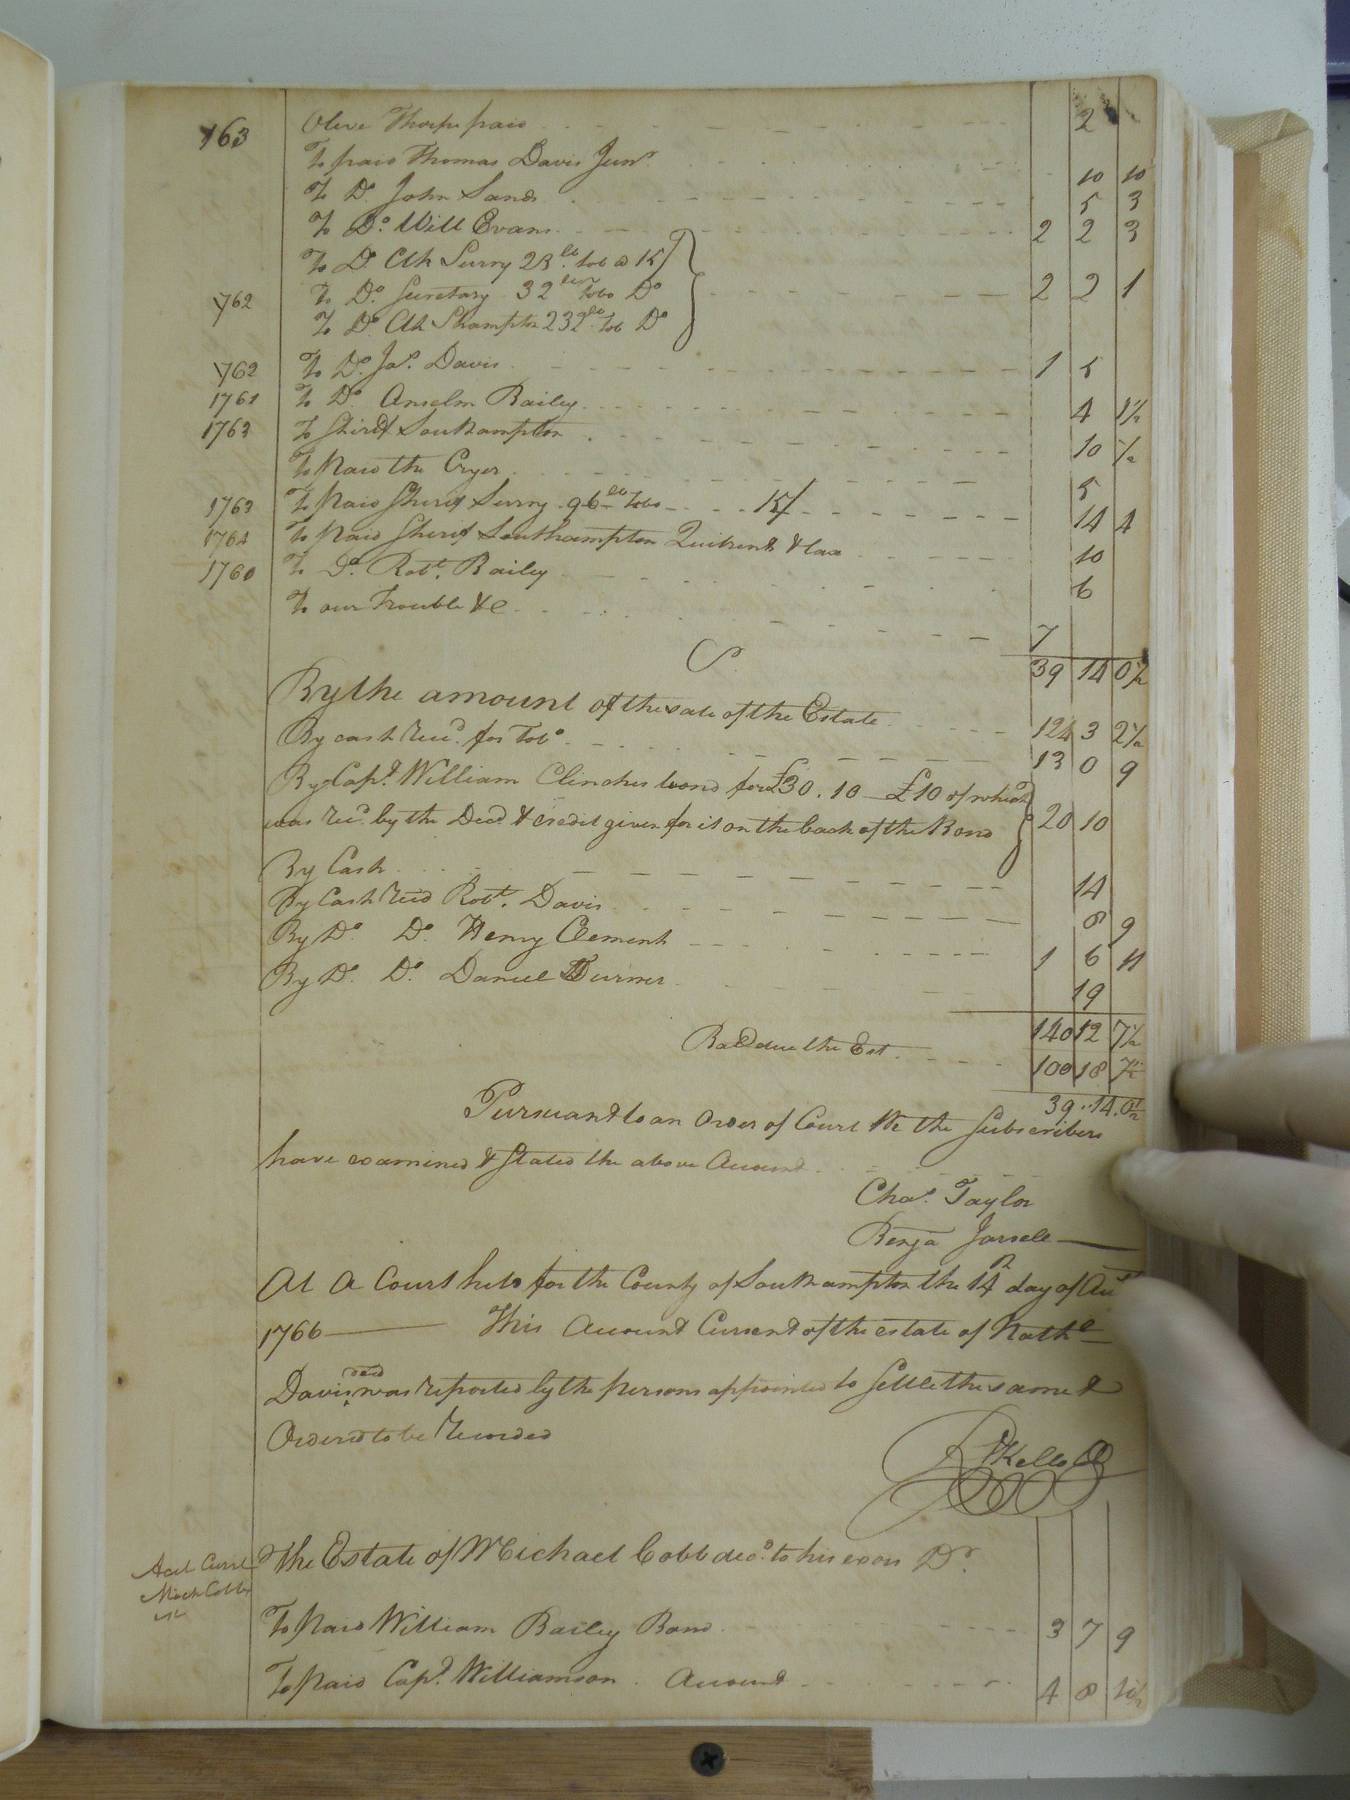 1763 Olive Thorpe paid 2
To paid Thomas Davis Junr 10 10
To Do John Sands 5 3
To Do Will Evans 2 2 3
To Do Clk Surry 23 lb. tob @ 15/
1762 To Do Secretary 32 lb Tobo Do 2 2 1
To Do Clk Shampton 232 lb Tob Do
1762 To Do Jas. Davis 1 5
1761 To Do Anselm Bailey 4 1½
1763 To Sherif Southampton 10 ½
To Paid the Cryer 5
1763 To Paid Sherif Surry 96 lb Tobo 15/ 14 4
1764 To Paid Sherif Southampton Quitrent & tax 10
1760 To Do Robt. Bailey 6
To our Trouble &c 7
39 14 0½
Cr
By the amount of the sale of the Estate 124 3 2½
By cash Recd. for Tobo 13 0 9
By Capt. William Clinches bond for £30.10 £10 of which
was rec. by the Decd & credit given for it on the back of the Bond 20 10
By Cash 14
By Cash Recd Robt. Davis 8 9
By Do Do Henry Clement 1 6 11
By Do Do Daniel Turner 19
140 12 7½
Bal due the Est 100 18 7
39..14.0½
Pursuant to an Order of Court We the Subscribers
have examined & stated the above Account
Chas. Taylor
Benja
At a Court held for the County of Southampton the 14 day of Au
1766 This Account Current of the estate of Nathl
decd
Davis was reported by the persons appointed to settle the same &
Ordered to be Recorded
R Kello
Act Curt
Mich Cobbs
The Estate of Michael Cobb decd. to his exors Dr.
To Paid William Bailey Bond 3 7 9
To Paid Capt. Williamson Account 4 8 10½